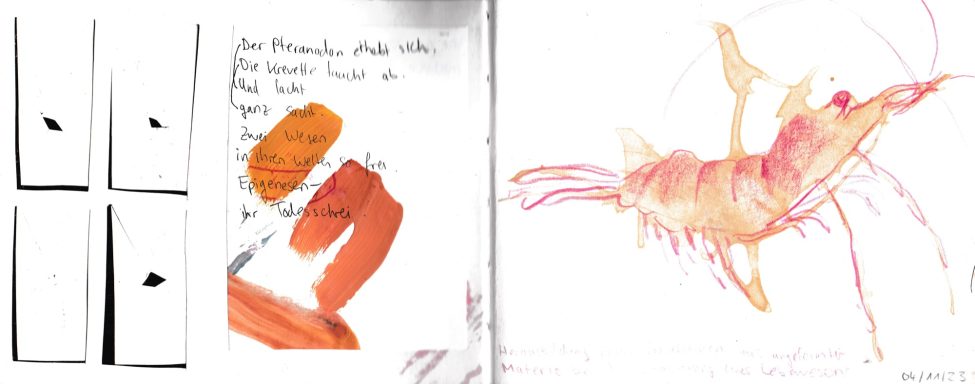 Der Pteranodon erhebt sich.
Die Krevette taucht ab.
Und lacht
ganz sacht.
Zwei Wesen
in ihren Welten so frei.
Epigenesen–
ihr Todesschrei.
Materie
Lebewesen
04/11/23